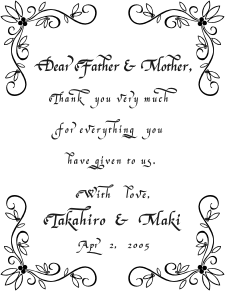 Dear Father & Mother,
Thank you very much
for everything you
have given to us.
With love,
Takahiro & Maki
Apr 2, 2005